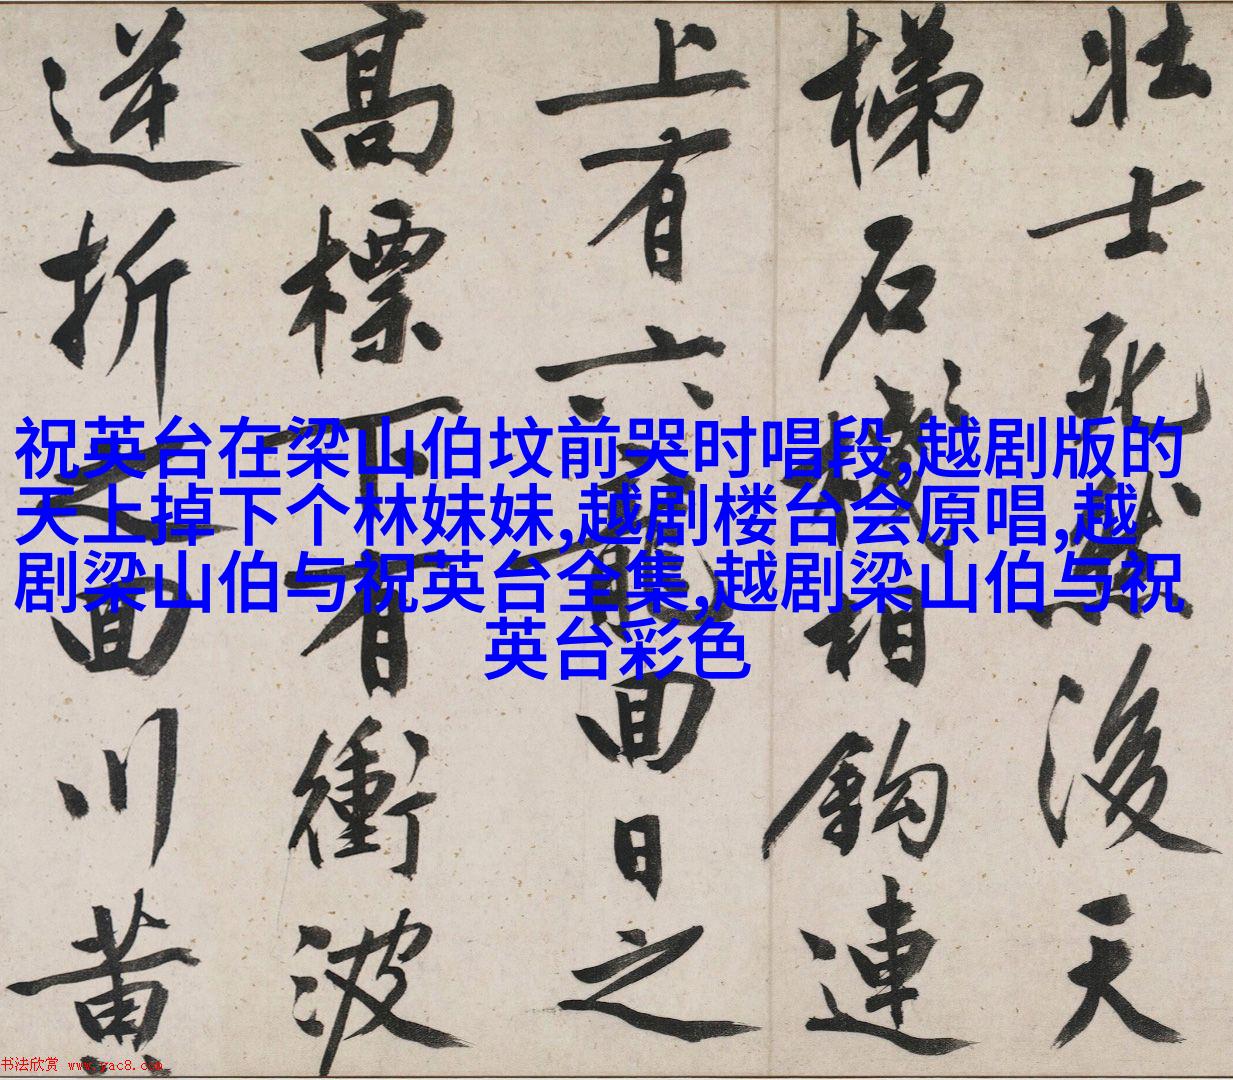 壮士死然後天
梯石棧相鈎連
上有六龍回日之
高標下有衝波
逆折之回川黄
祝英台在梁山伯坟前哭时唱段,越剧版的
天上掉下个林妹妹,越剧楼台会原唱,越
剧梁山伯与祝英台全集,越剧梁山伯与祝
英台彩色
书法欣赏 www.yac8.com